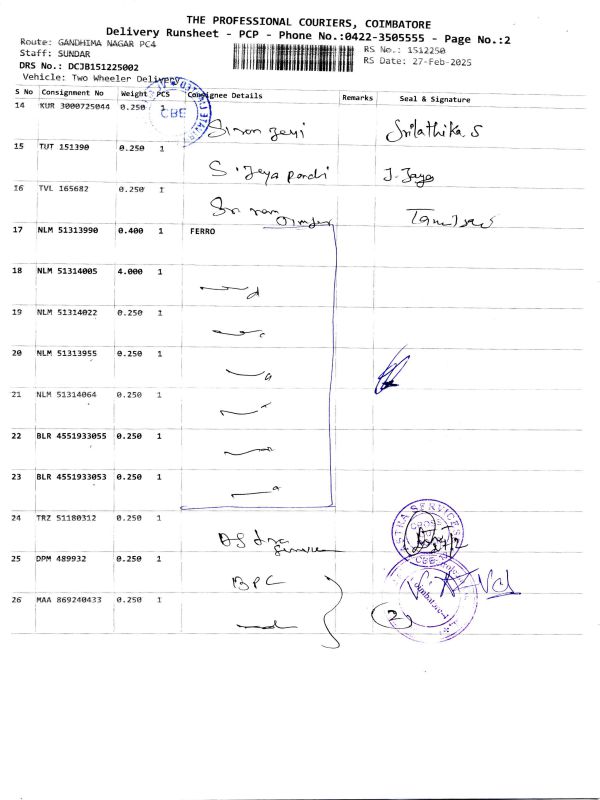 THE PROFESSIONAL COURIERS, COIMBATORE
Delivery Runsheet - PCP - Phone No.:0422-3505555 - Page No.:2
Route: GANDHIMA NAGAR PC4
RS No.: 1512250
Staff: SUNDAR
RS Date: 27-Feb-2025
DRS No.: DCJB151225002
Vehicle: Two Wheeler Delivery
S No Consignment No Weight PCS Consignee Details Remarks Seal & Signature
CBE
14 KUR 3000725044 0.250 1 Srilathika.S
15 TUT 151390 0.250 1 S. Jeya pandi J. Jaya
16 TVL 165682 0.250 1 Sri ram
17 NLM 51313990 0.400 1 FERRO
18 NLM 51314005 4.000 1
19 NLM 51314022 0.250 1
20 NLM 51313955 0.250 1
21 NLM 51314064 0.250 1
22 BLR 4551933055 0.250 1
23 BLR 4551933053 0.250 1
24 TRZ 51180312 0.250 1
25 DPM 489932 0.250 1 BPC
26 MAA 869240433 0.250 1 (2)